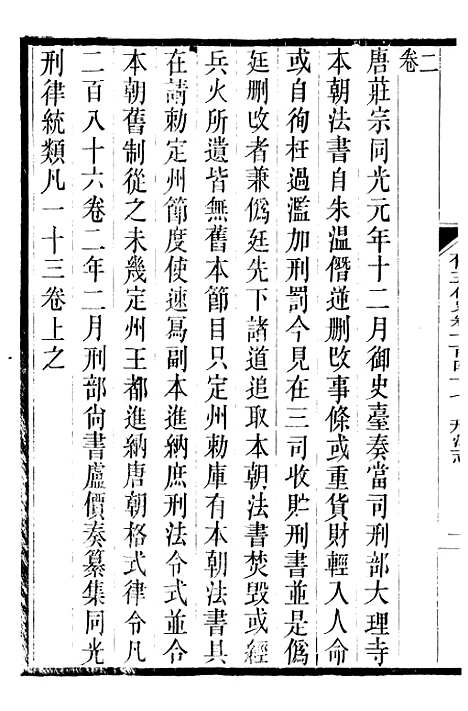 二
卷
唐莊宗同光元年十二月御史臺奏當司刑部大理寺
本朝法書自朱溫僭逆删改事條或重貨財輕入人命
或自徇枉過濫加刑罰今見在三司收貯刑書並是僞
廷删改者兼僞廷先下諸道追取本朝法書焚毀或經
兵火所遺皆無舊本節目只定州勅庫有本朝法書具
在請勅定州節度使速寫副本進納庶刑法令式並合
本朝舊制從之未幾定州王都進納唐朝格式律令凡
二百八十六卷二年二月刑部尙書盧價奏纂集同光
刑律統類凡一十三卷上之